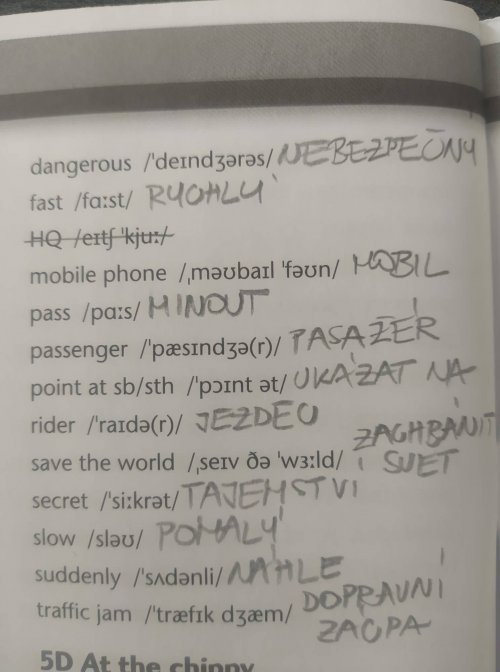 dangerous /ˈdeɪndʒərəs/ NEBEZPEČNÝ
fast /fɑːst/ RYCHLÝ
HQ /eɪtʃ ˈkjuː/
mobile phone /ˌməʊbaɪl ˈfəʊn/ MOBIL
pass /pɑːs/ MINOUT
passenger /ˈpæsɪndʒə(r)/ PASAŽÉR
point at sb/sth /ˈpɔɪnt ət/ UKÁZAT NA
rider /ˈraɪdə(r)/ JEZDEC
save the world /ˌseɪv ðə ˈwɜːld/ ZACHRÁNIT
SVĚT
secret /ˈsiːkrət/ TAJEMSTVÍ
slow /sləʊ/ POMALÝ
suddenly /ˈsʌdənli/ NÁHLE
traffic jam /ˈtræfɪk dʒæm/ DOPRAVNÍ
ZÁCPA
5D At the chippy